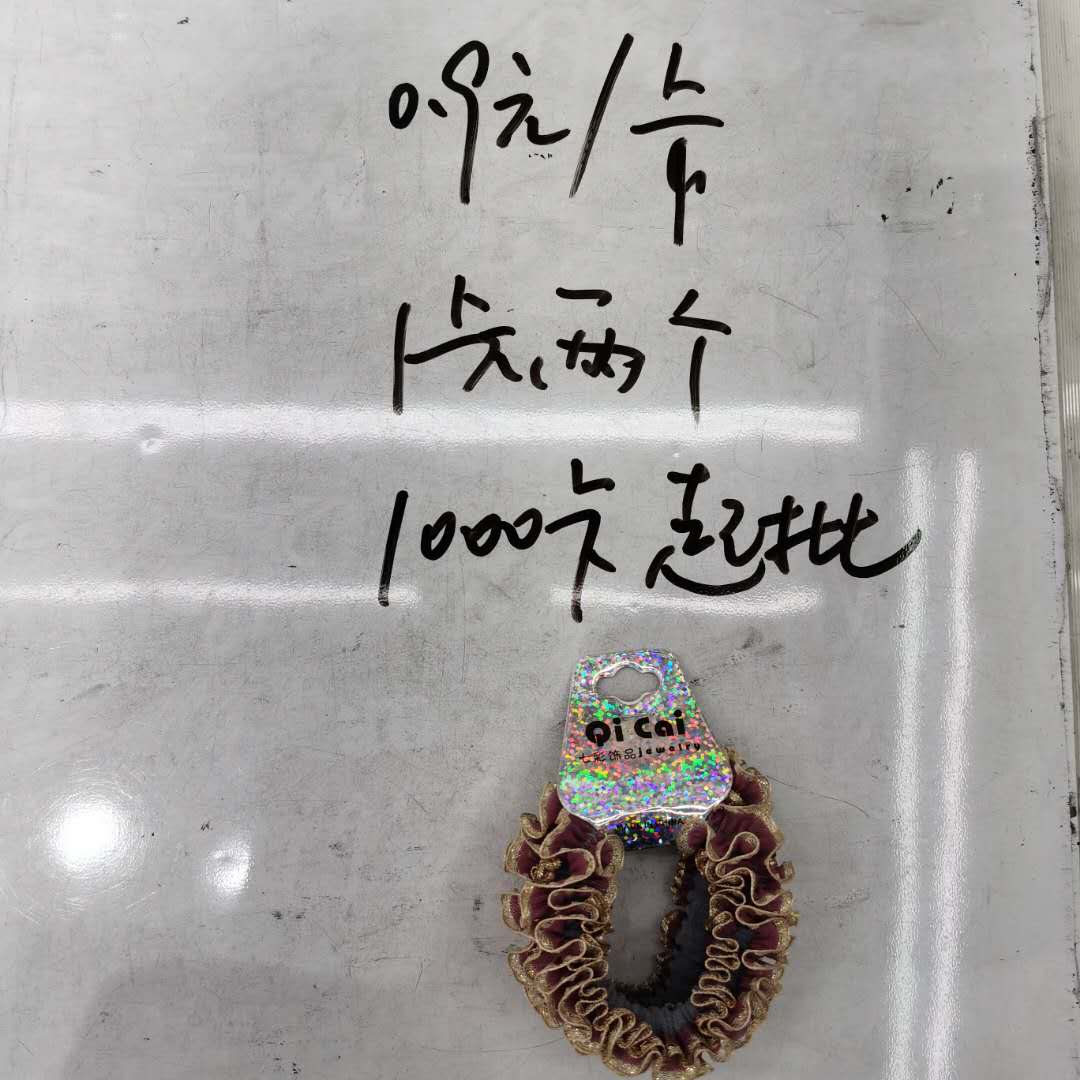 0.9元/卡
1卡两个
1000卡起批
Qi Cai
七彩饰品jewelry